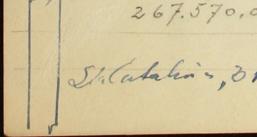 267.570,0
St. Catalina,